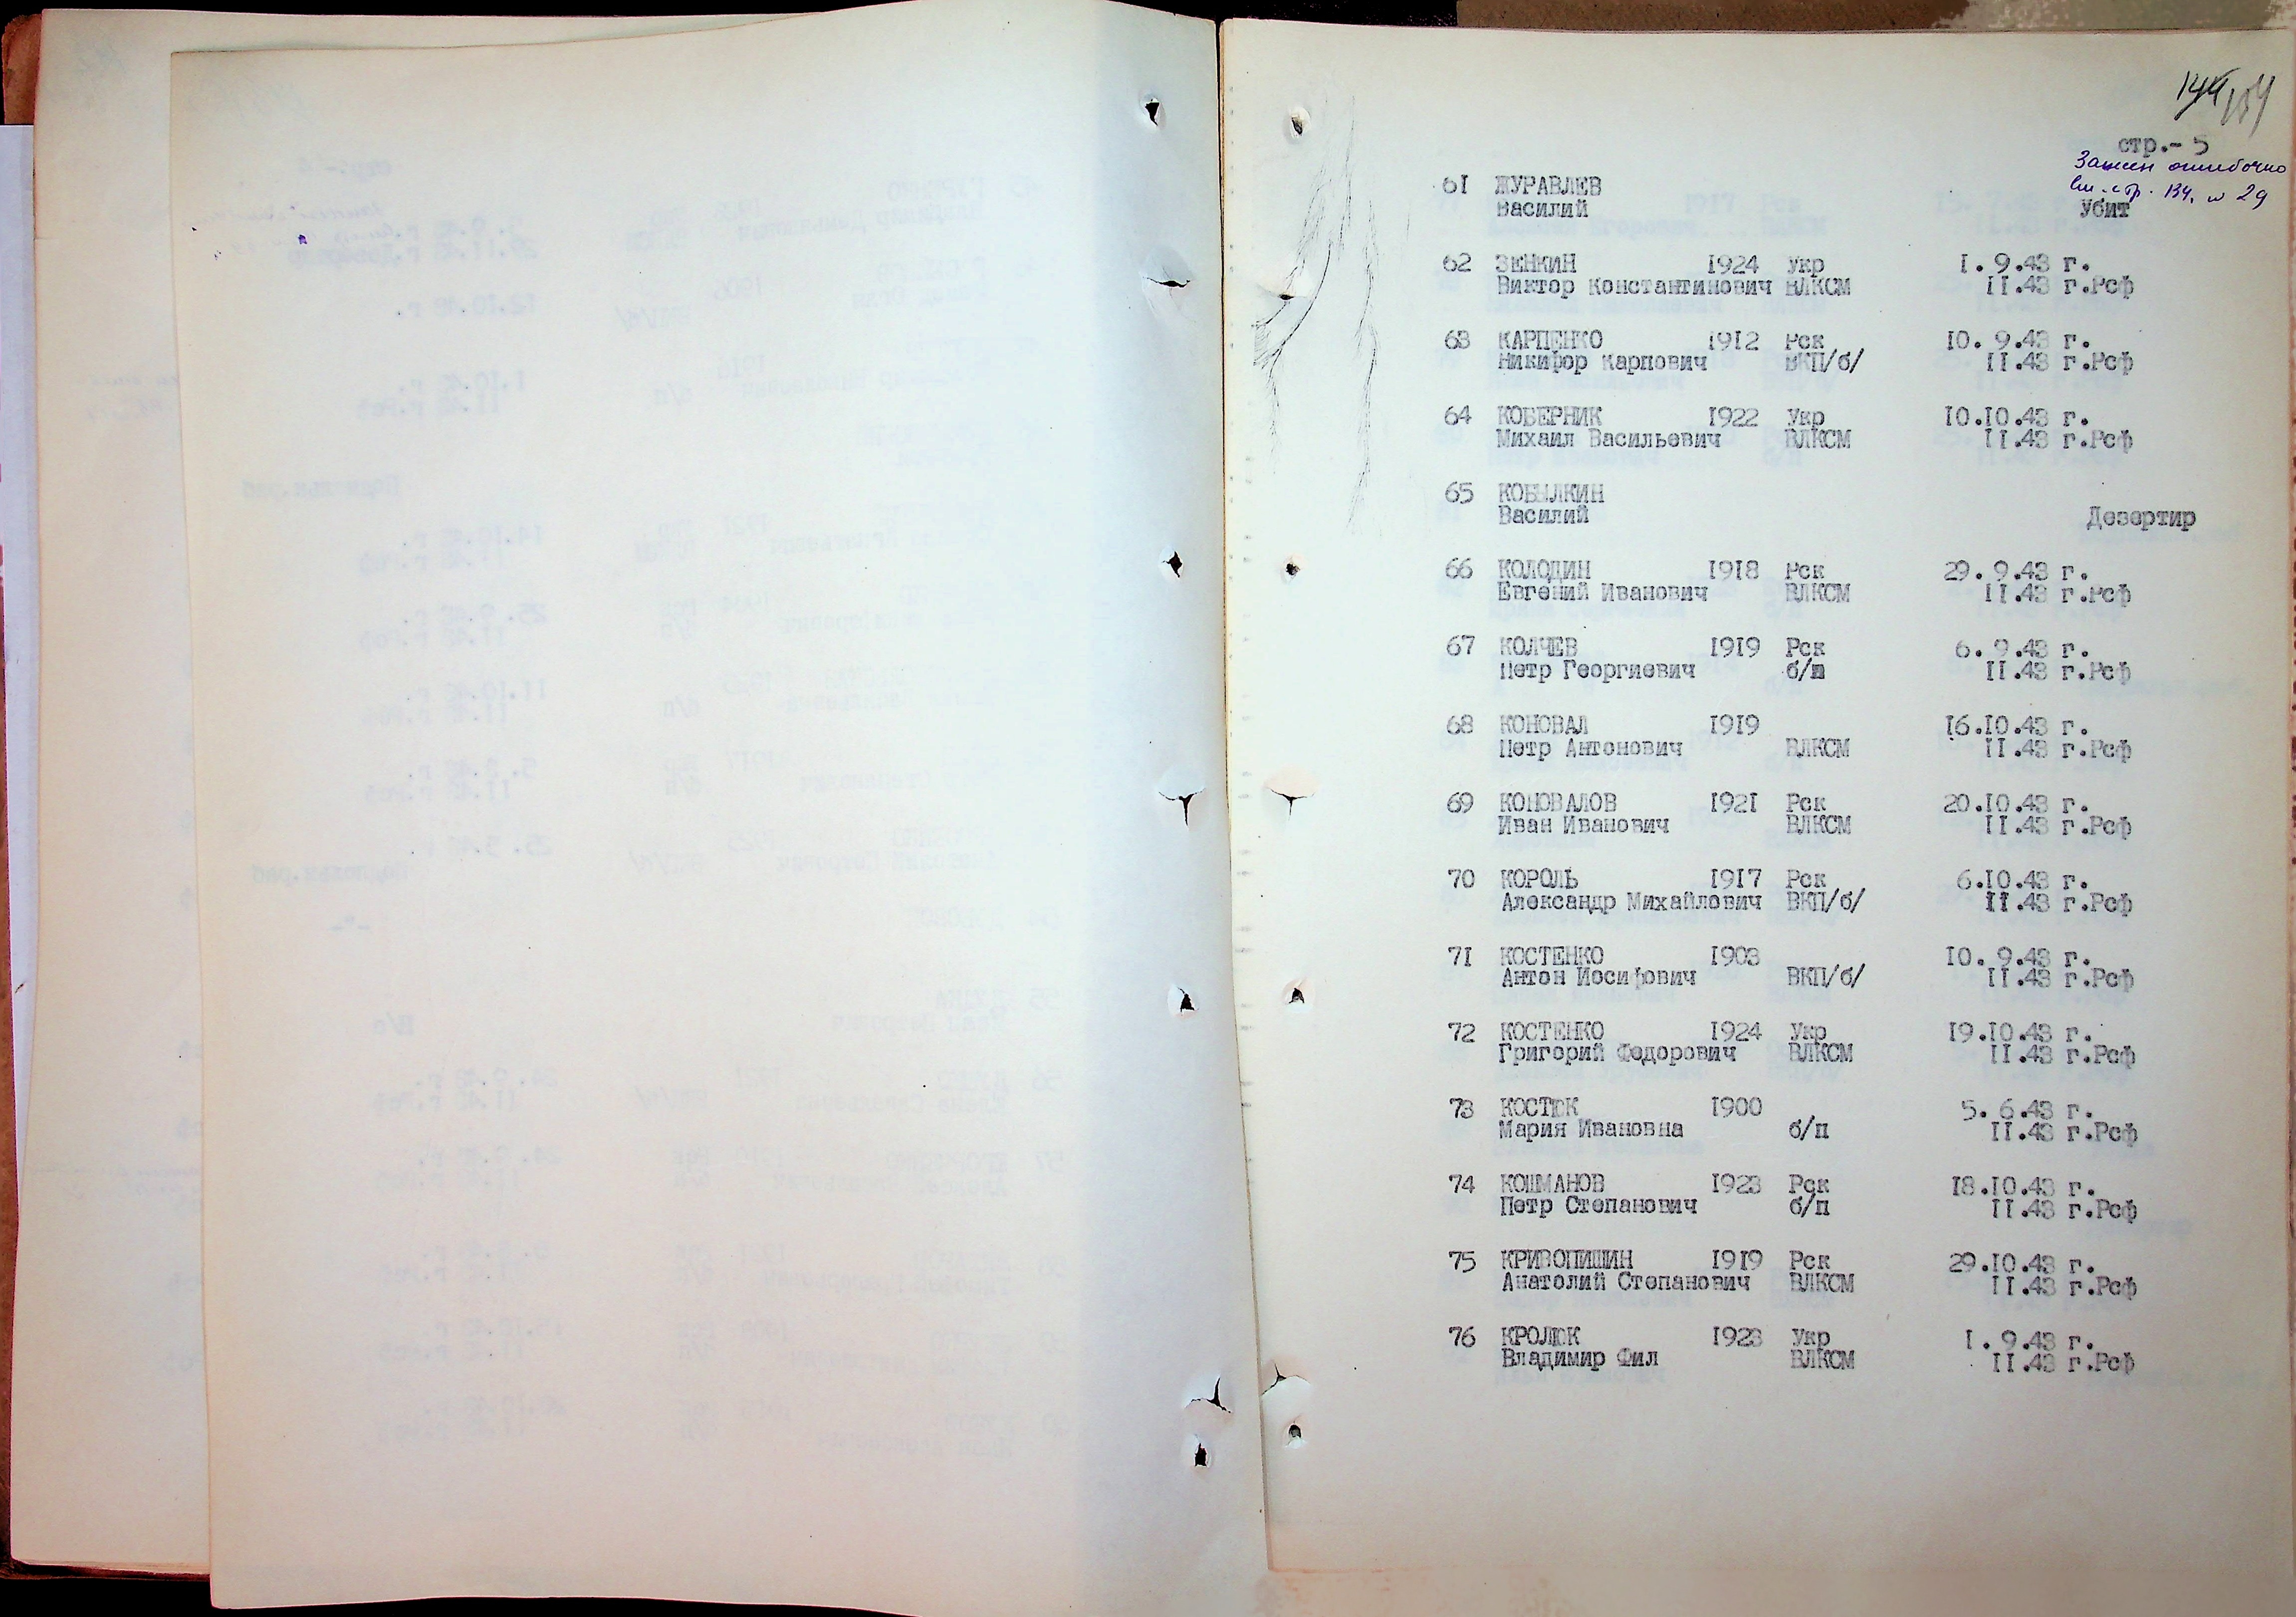 144 134
стр.- 5
Зашит ошибочно
См. стр. 134. № 29
61 ЖУРАВЛЕВ
Василий Убит
62 ЗЕНКИН 1924 Укр 1. 9.43 г.
Виктор Константинович ВЛКСМ 11.43 г.Рсф
63 КАРПЕНКО 1912 Рск 10. 9.43 г.
Никифор Карпович ВКП/б/ 11.43 г.Рсф
64 КОБЕРНИК 1922 Укр 10.10.43 г.
Михаил Васильевич ВЛКСМ 11.43 г.Рсф
65 КОБЫЛКИН
Василий Дезертир
66 КОЛОДИН 1918 Рск 29. 9.43 г.
Евгений Иванович ВЛКСМ 11.43 г.Рсф
67 КОЛЧЕВ 1919 Рск 6. 9.43 г.
Петр Георгиевич б/п 11.43 г.Рсф
68 КОНОВАЛ 1919 16.10.43 г.
Петр Антонович ВЛКСМ 11.43 г.Рсф
69 КОНОВАЛОВ 1921 Рск 20.10.43 г.
Иван Иванович ВЛКСМ 11.43 г.Рсф
70 КОРОЛЬ 1917 Рск 6.10.43 г.
Александр Михайлович ВКП/б/ 11.43 г.Рсф
71 КОСТЕНКО 1903 10. 9.43 г.
Антон Иосифович ВКП/б/ 11.43 г.Рсф
72 КОСТЕНКО 1924 Укр 19.10.43 г.
Григорий Федорович ВЛКСМ 11.43 г.Рсф
73 КОСТЮК 1900 5. 6.43 г.
Мария Ивановна б/п 11.43 г.Рсф
74 КОШМАНОВ 1923 Рск 18.10.43 г.
Петр Степанович б/п 11.43 г.Рсф
75 КРИВОПИШИН 1919 Рск 29.10.43 г.
Анатолий Степанович ВЛКСМ 11.43 г.Рсф
76 КРОЛЮК 1923 Укр 1. 9.43 г.
Владимир Фил ВЛКСМ 11.43 г.Рсф